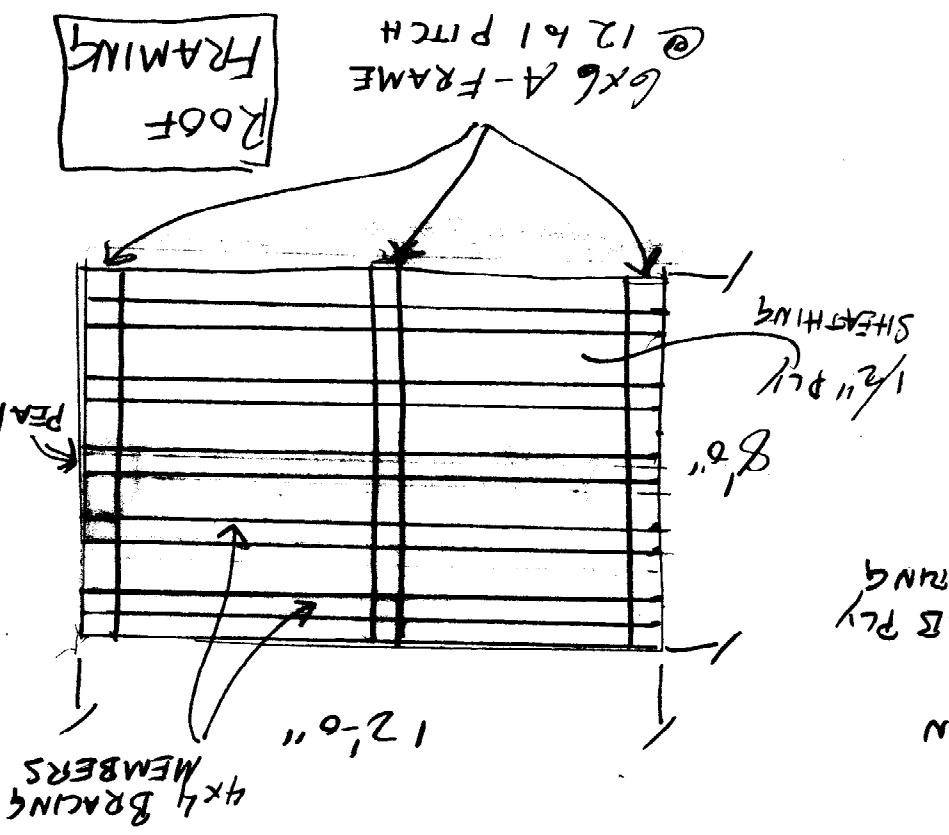 4x4 BRACING
MEMBERS
12'-0"
N
B PLY
8'0"
1/2" PLY
SHEATHING
PEA
6x6 A-FRAME
@ 12 to 1 PITCH
ROOF
FRAMING